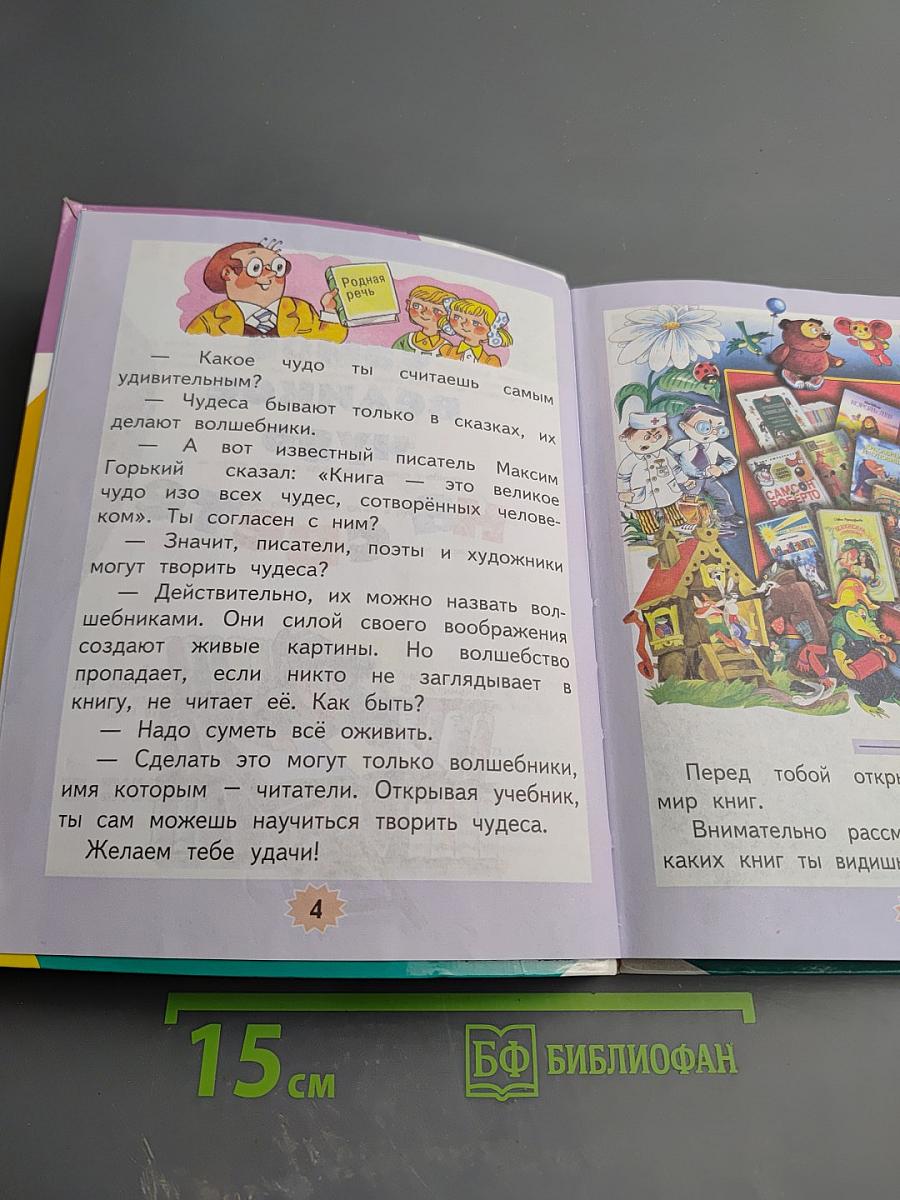 Родная
речь
— Какое чудо ты считаешь самым
удивительным?
— Чудеса бывают только в сказках, их
делают волшебники.
— А вот известный писатель Максим
Горький сказал: «Книга — это великое
чудо изо всех чудес, сотворённых челове-
ком». Ты согласен с ним?
— Значит, писатели, поэты и художники
могут творить чудеса?
— Действительно, их можно назвать вол-
шебниками. Они силой своего воображения
создают живые картины. Но волшебство
пропадает, если никто не заглядывает в
книгу, не читает её. Как быть?
— Надо суметь всё оживить.
— Сделать это могут только волшебники,
имя которым — читатели. Открывая учебник,
ты сам можешь научиться творить чудеса.
Желаем тебе удачи!
4
САМСОН
РОБЕРТО
Перед тобой откры
мир книг.
Внимательно рассм
каких книг ты видишь
15 см
БФ БИБЛИОФАН